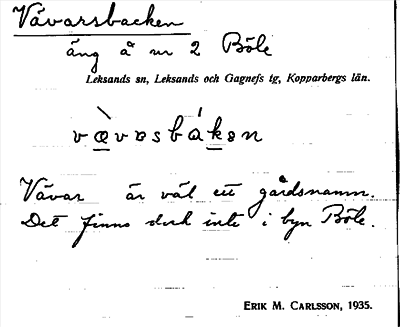 Vävarsbacken
äng å nr 2 Böle
Leksands sn, Leksands och Gagnefs tg, Kopparbergs län.
vævɐsbákən
Vävar är väl ett gårdsnamn.
Det finns dock inte i byn Böle.
ERIK M. CARLSSON, 1935.